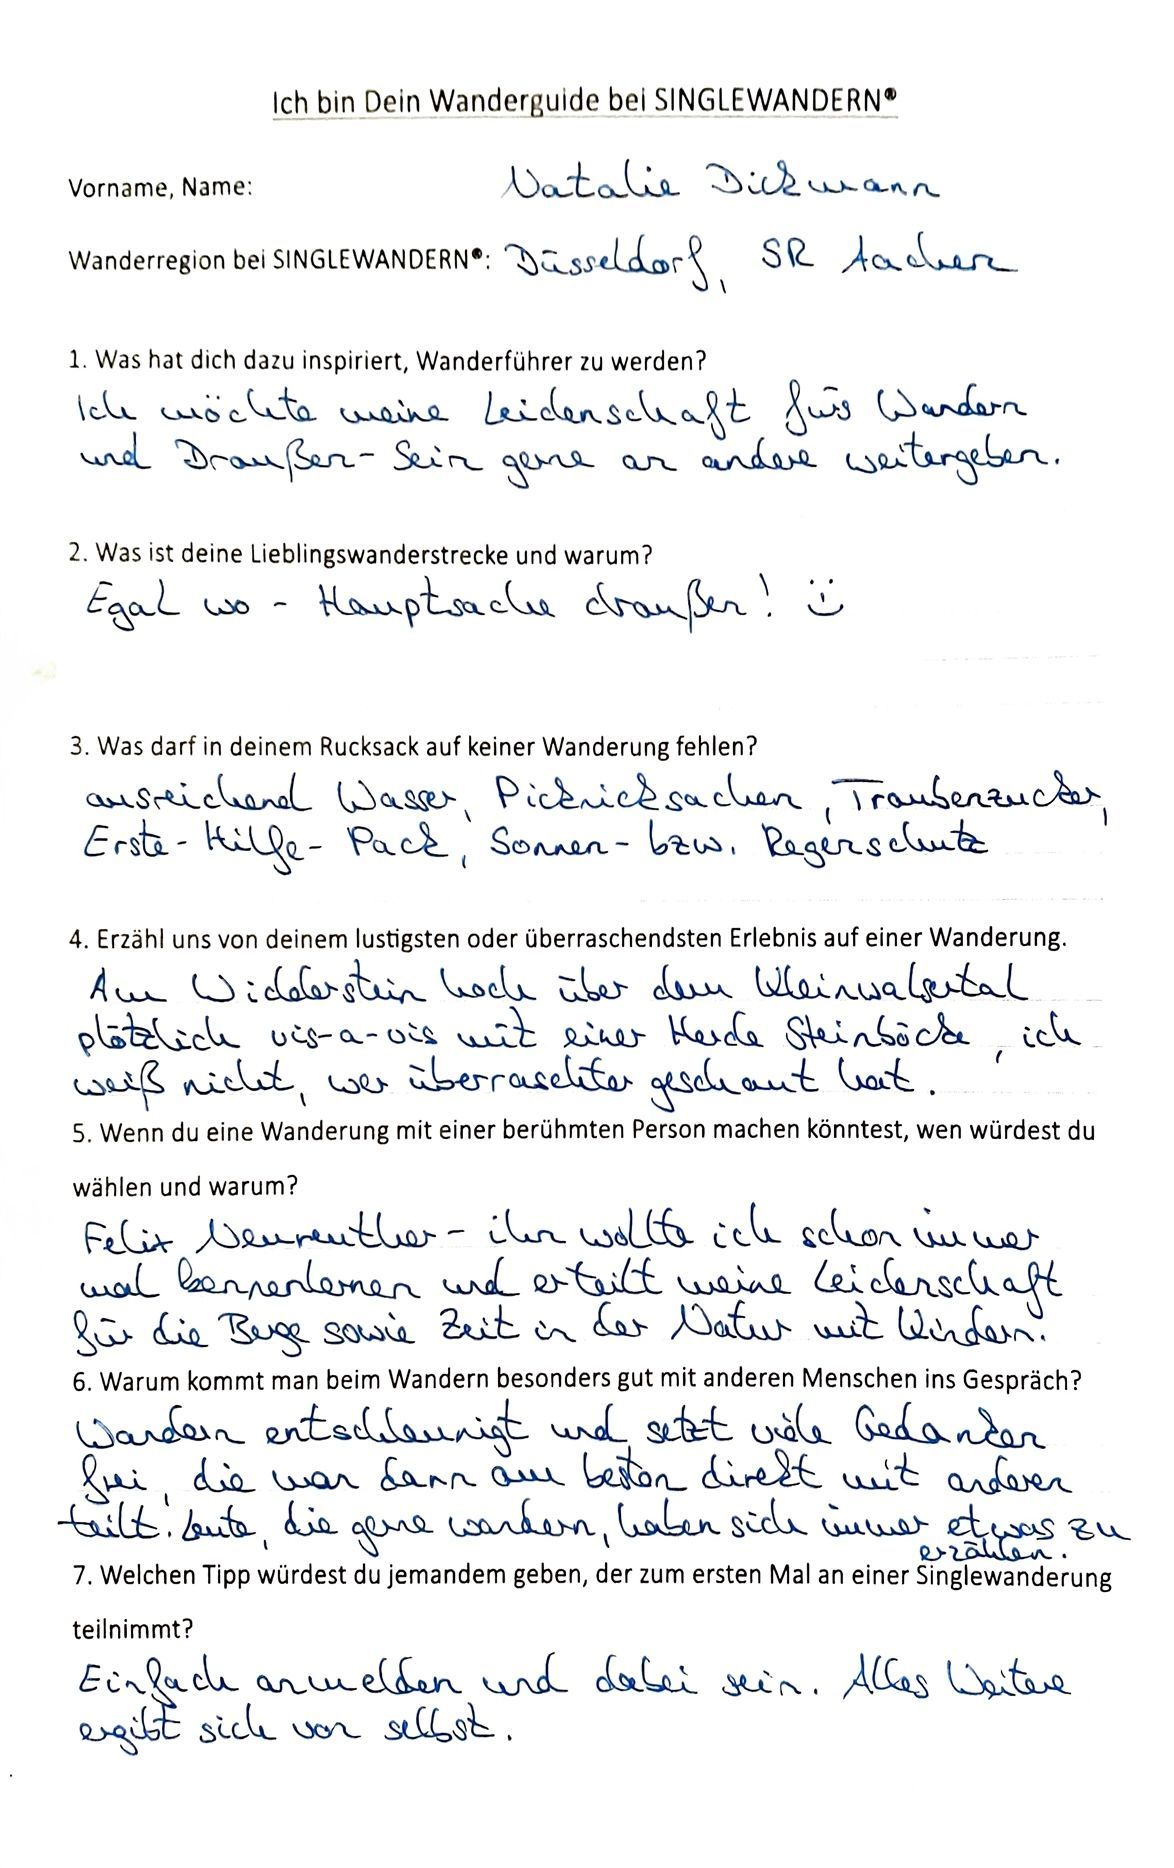 Ich bin Dein Wanderguide bei SINGLEWANDERN®
Vorname, Name: Natalie Dickmann
Wanderregion bei SINGLEWANDERN®: Düsseldorf, SR Aachen
1. Was hat dich dazu inspiriert, Wanderführer zu werden?
Ich möchte meine Leidenschaft fürs Wandern
und Draußen-Sein gerne an andere weitergeben.
2. Was ist deine Lieblingswanderstrecke und warum?
Egal wo - Hauptsache draußen! :-)
3. Was darf in deinem Rucksack auf keiner Wanderung fehlen?
ausreichend Wasser, Picknicksachen, Traubenzucker,
Erste-Hilfe-Pack, Sonnen- bzw. Regenschutz
4. Erzähl uns von deinem lustigsten oder überraschendsten Erlebnis auf einer Wanderung.
Am Widderstein hoch über dem Kleinwalsertal
plötzlich vis-a-vis mit einer Herde Steinböcke, ich
weiß nicht, wer überraschter geschaut hat.
5. Wenn du eine Wanderung mit einer berühmten Person machen könntest, wen würdest du
wählen und warum?
Felix Neureuther - ihn wollte ich schon immer
mal kennenlernen und er teilt meine Leidenschaft
für die Berge sowie Zeit in der Natur mit Kindern.
6. Warum kommt man beim Wandern besonders gut mit anderen Menschen ins Gespräch?
Wandern entschleunigt und setzt viele Gedanken
frei, die man dann am besten direkt mit anderen
teilt. Leute, die gerne wandern, haben sich immer etwas zu
erzählen.
7. Welchen Tipp würdest du jemandem geben, der zum ersten Mal an einer Singlewanderung
teilnimmt?
Einfach anmelden und dabei sein. Alles Weitere
ergibt sich von selbst.